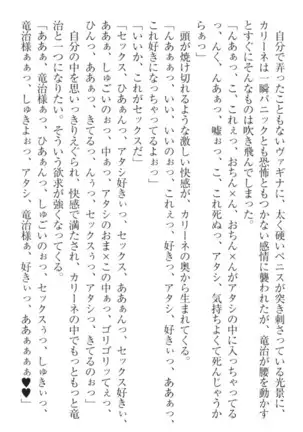 自分で弄ったこともないヴァギナに、猛々しいペニスが突き刺さっている光景に、
カリーネは一瞬パニックとも恐怖ともつかない感情に襲われたが、竜治が腰を動かす
とすぐにそんなものは吹き飛んでしまった。
「んあぁっ、こ、これぇっ、おちん×ん、おちん×んがアタシの中に入っちゃってる
っ、んく、んあぁっ、嘘ぉっ、こ、これ死ぬっ、アタシ、気持ちよくて死んじゃうか
らぁっ」
　頭が焼け切れるような激しい快感が、カリーネの奥から生まれてくる。
「んああぁっ、ちいい、いいのぉっ、これぇっ、好きっ、アタシ、好きぃっ、ああぁっ、
これ好きになっちゃってるよぉっ」
「いいか、これがセックスだ」
「セックス、ひあぁんっ、アタシ好きぃっ、セックス、ああぁんっ、セックス好きぃ、
あぁぁっ、しゅごいのぉっ、中ぁっ、アタシのおま×この中ぁっ、ゴリゴリッてぇぇっ、
ひんっ、あああっ、きてるっ、んぅっ、セックスぅぅっ、アタシっ、きてるのぉっ」
　自分の中を思いっきりえぐられ、快感で満たされ、カリーネの中でもっともっと竜
治と一つになりたい。そういう欲求が強くなってくる。
「ああぁ、竜治様ぁぁっ、ひあぁんっ、しゅごいのぉっ、セックスぅっ、しゅきぃっ、
あぁぁっ、しゅきよぉっ、アタシ、竜治様ぁぁっ、好きぃっ、ああぁぁぁぁ♥♥」